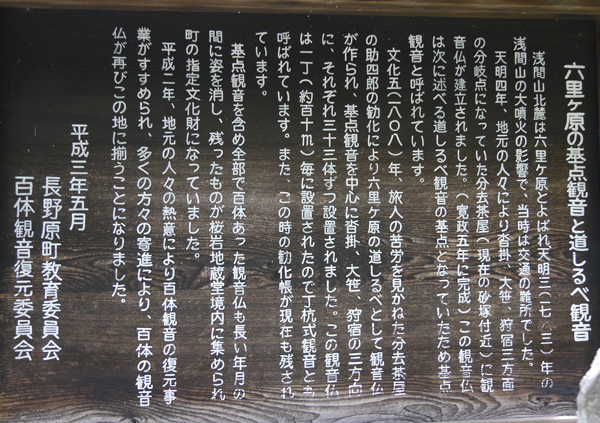 六里ヶ原の基点観音と道しるべ観音
浅間山北麓は六里ヶ原とよばれ天明三(一七八三)年の
浅間山の大噴火の影響で、当時は交通の難所でした。
天明四年、地元の人々により沓掛、大笹、狩宿三方面
の分岐点になっていた分去茶屋(現在の砂塚付近)に観
音仏が建立されました。(寛政五年に完成)この観音仏
は次に述べる道しるべ観音の基点となっていたため基点
観音と呼ばれています。
文化五(一八〇八)年、旅人の苦労を見かねた分去茶屋
の助四郎の勧化により六里ヶ原の道しるべとして観音仏
が作られ、基点観音を中心に沓掛、大笹、狩宿の三方向
に、それぞれ三十三体ずつ設置されました。この観音仏
は一丁(約百十m)毎に設置されたので丁杭式観音とも
呼ばれています。また、この時の勧化帳が現在も残され
ています。
基点観音を含め全部で百体あった観音仏も長い年月の
間に姿を消し、残ったものが桜岩地蔵堂境内に集められ
町の指定文化財になっていました。
平成二年、地元の人々の熱意により百体観音の復元事
業がすすめられ、多くの方々の寄進により、百体の観音
仏が再びこの地に揃うことになりました。
平成三年五月
長野原町教育委員会
百体観音復元委員会